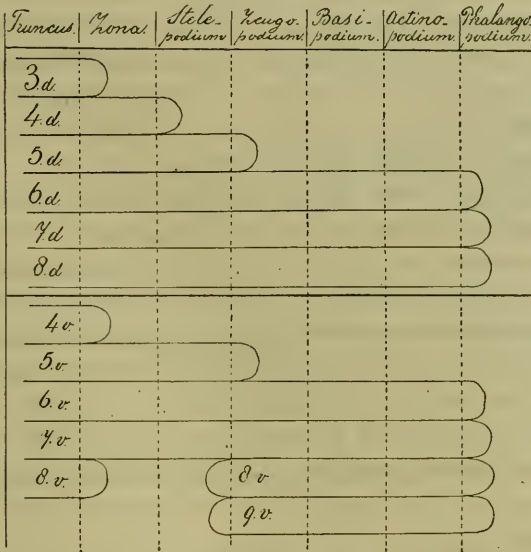 Truncus. Zona. Stele-podium. Zeugo-podium. Basi-podium. Actino-podium. Phalango-podium.
3.d.
4.d.
5.d.
6.d.
7.d
8.d
4 v.
5.v.
6.v.
7.v.
8.v. 8 v
9.v.